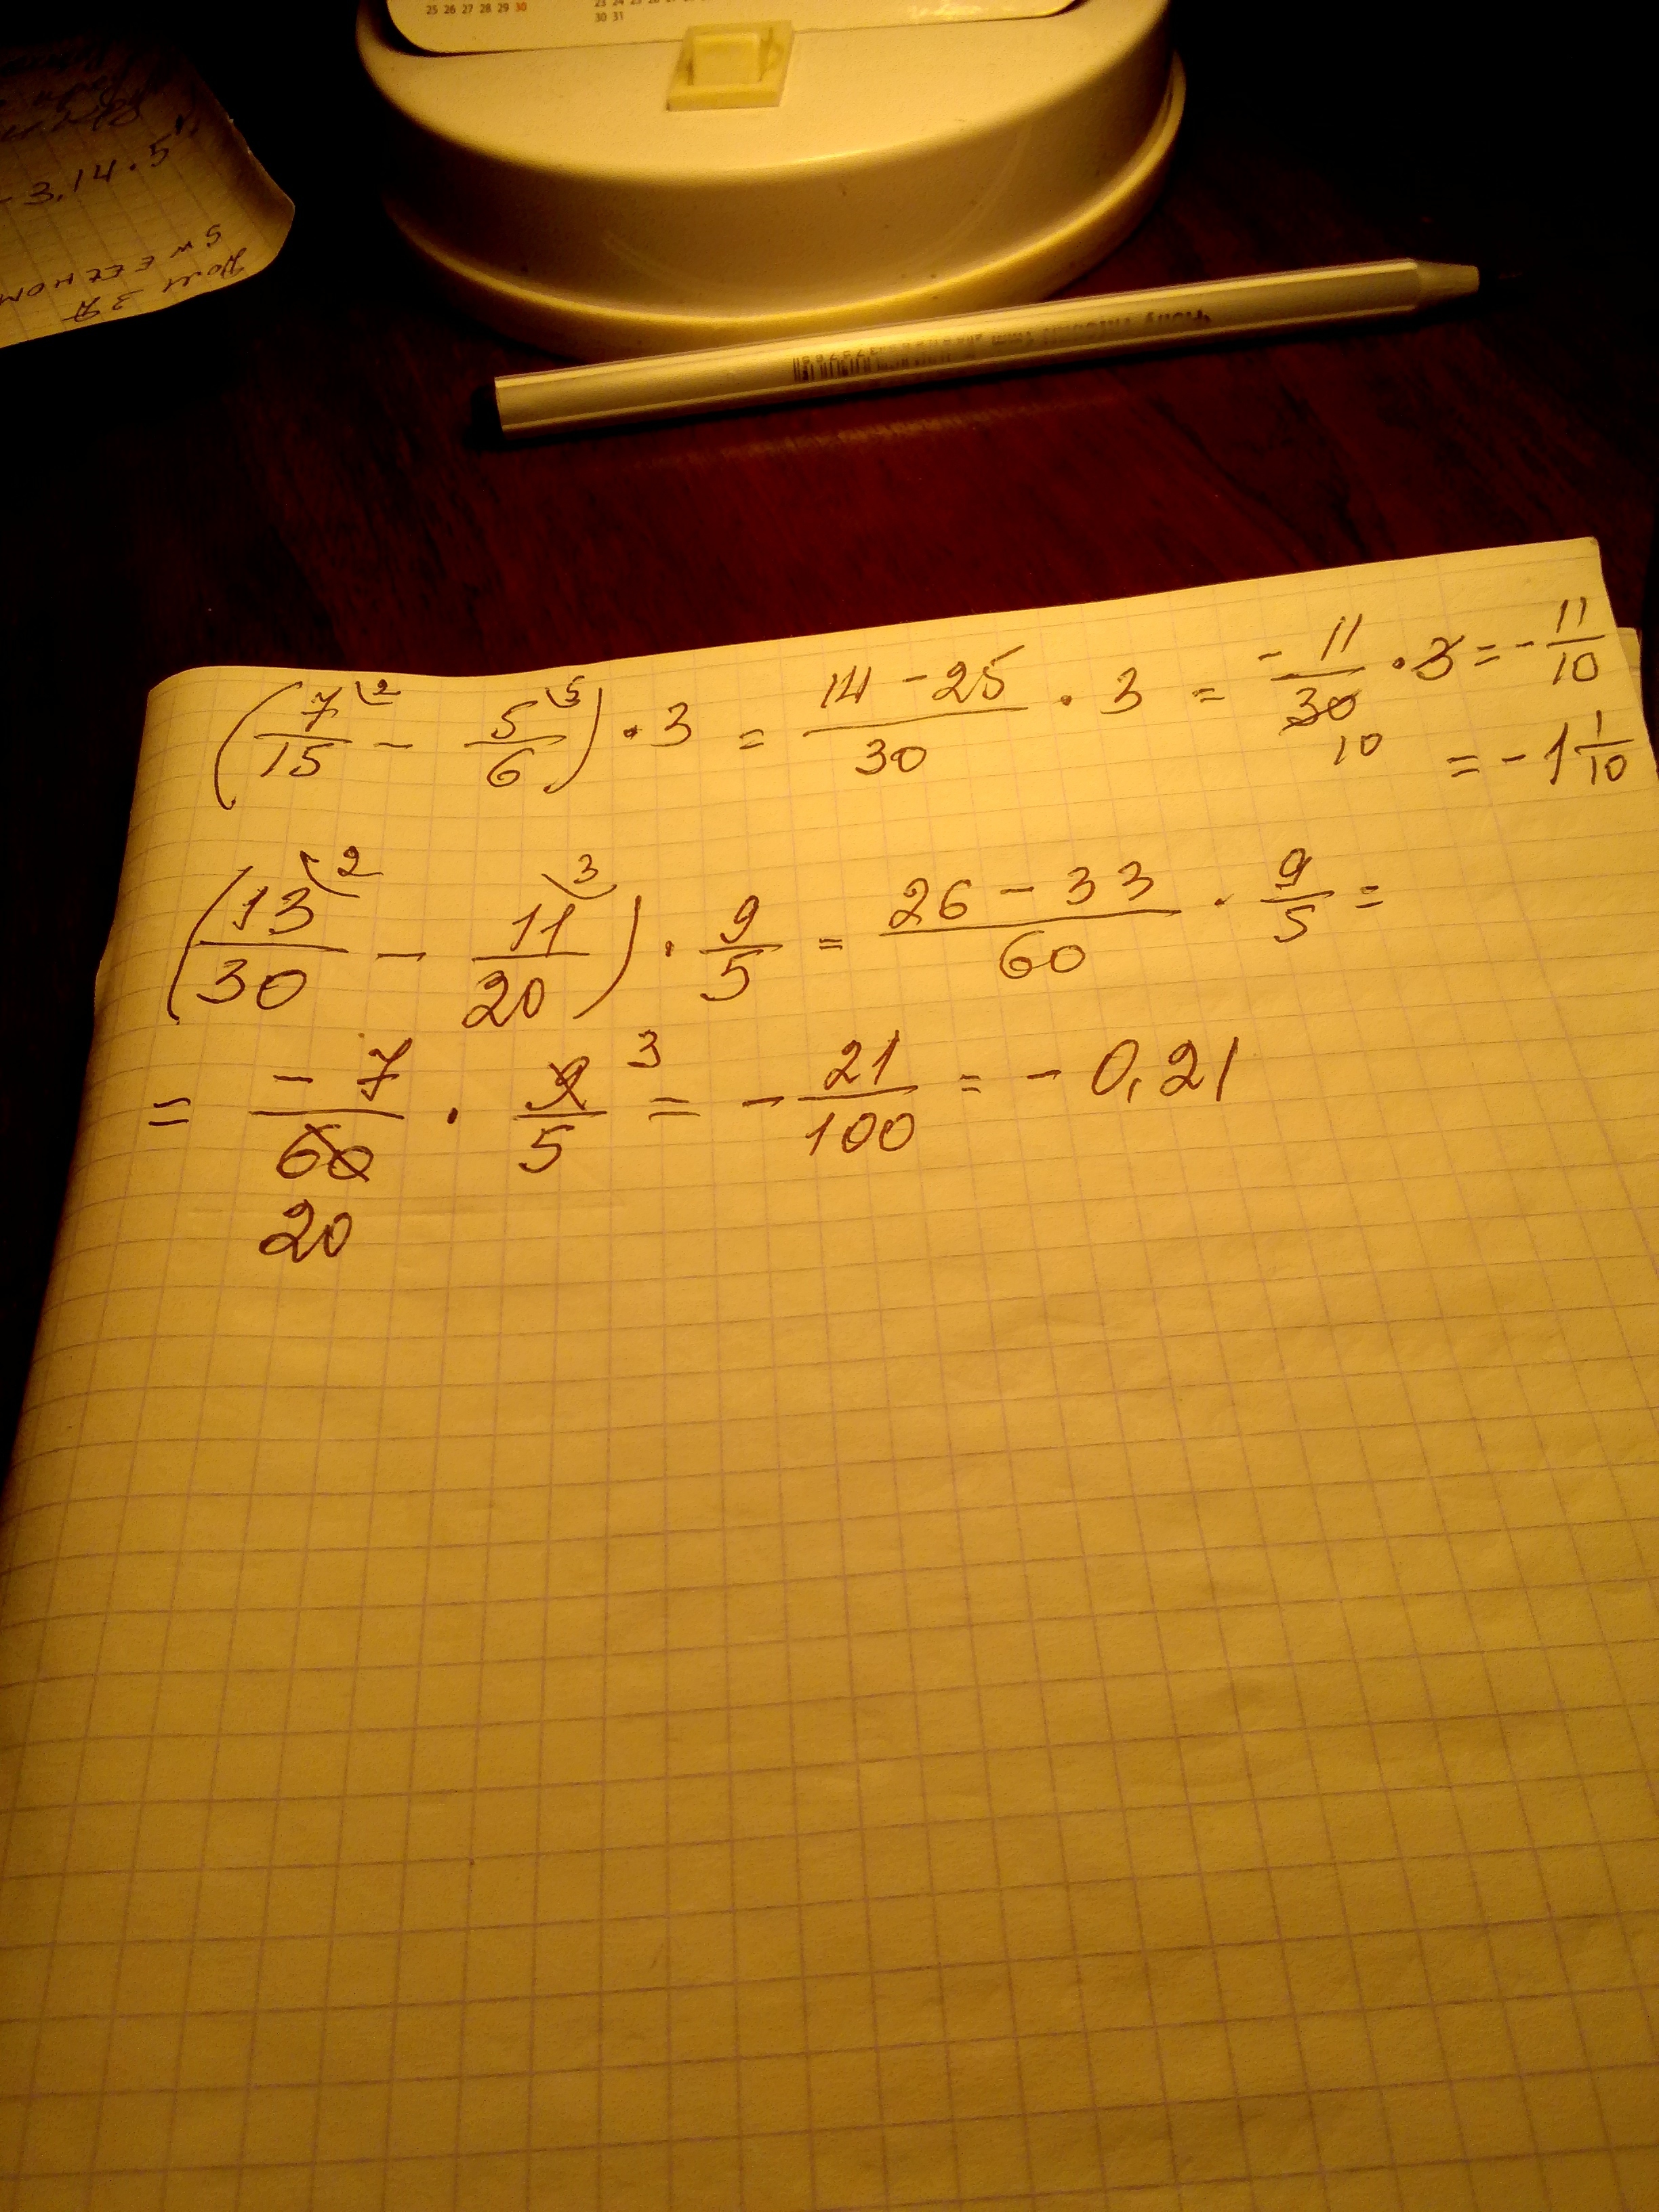 25 26 27 28 29 30
30 31
3,14 · 5
SWEET HOM
(7/15 - 5/6) · 3 = (14 - 25)/30 · 3 = -11/30 · 3 = -11/10
10
= -1 1/10
(13/30 - 11/20) · 9/5 = (26 - 33)/60 · 9/5 =
= -7/60 · 9/5 3 = -21/100 = -0,21
20